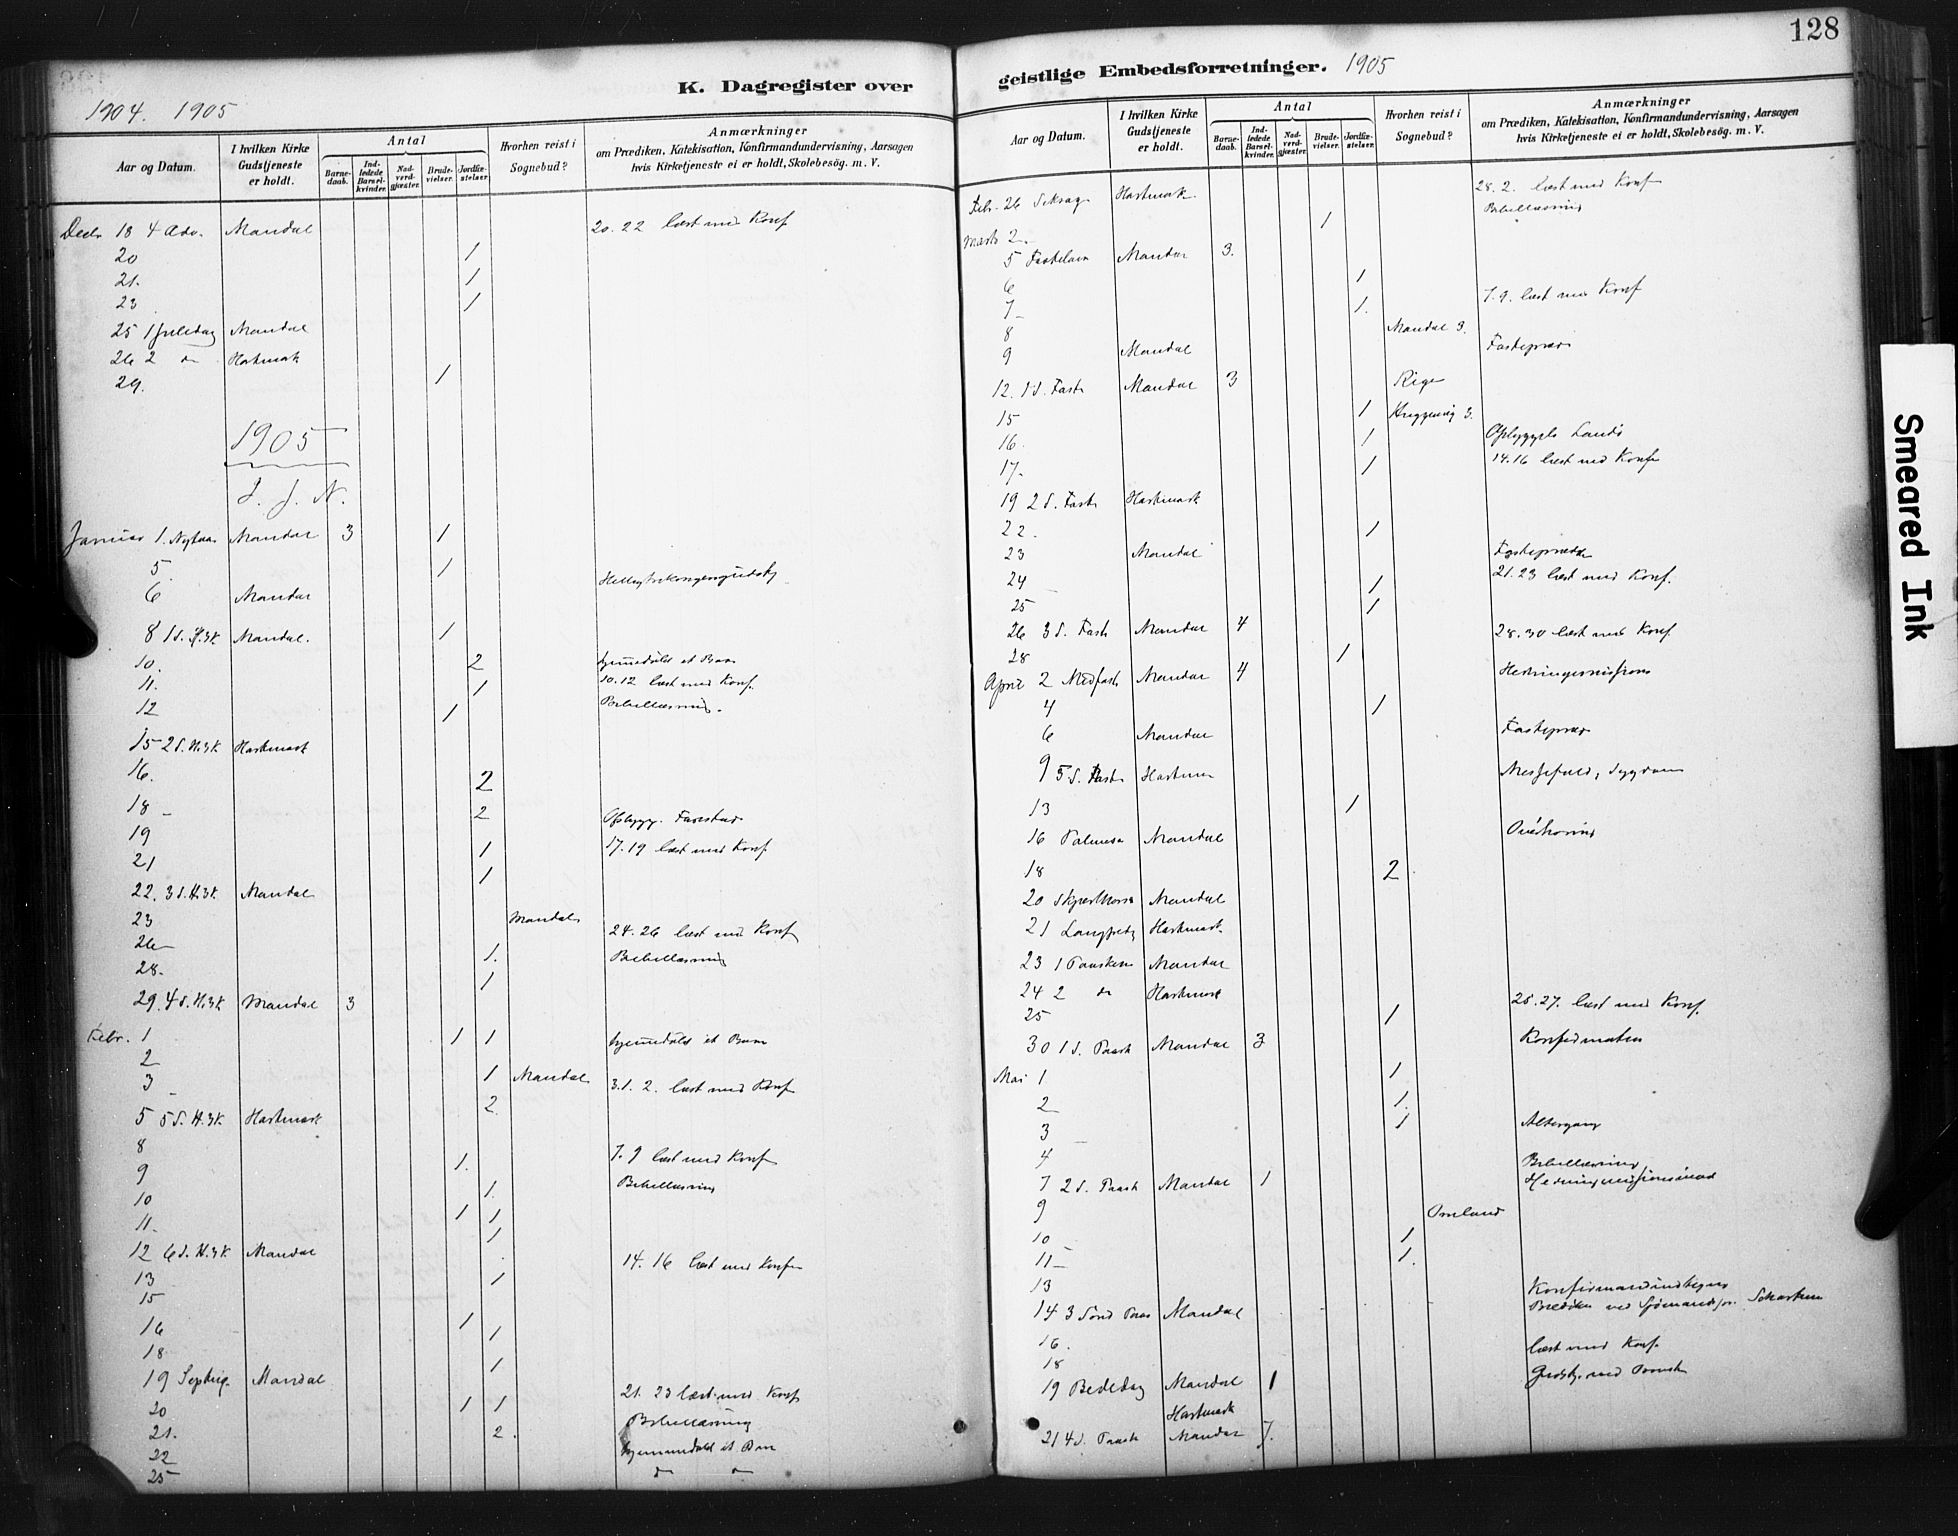 128
K. Dagregister over geistlige Embedsforretninger. 1905
1904. 1905
Aar og Datum. I hvilken Kirke Gudstjeneste er holdt. Antal Barnedaab. Indledede Barselkvinder. Nadverdgjæster. Brudevielser. Jordfæstelser Hvorhen reist i Sognebud? Anmærkninger om Prædiken, Katekisation, Konfirmandundervisning, Aarsagen hvis Kirketjeneste ei er holdt, Skolebesög. m. V.
Decbr 18 4 Adv. Mandal 20. 22 læst med Konf
20 1
21. 1
23 1
25 1 Juledag Mandal
26 2 do Hartmark
29. 1
1905
I. J. N.
Januar 1. Nytaar Mandal 3 1
5. 1
6 Mandal
8 1 S. H.3K Mandal. 1
10. 2 hjemmedøbt et Barn
11. 1 10. 12 læst med Konf.
12 1 Bibellæsning.
15 2 S. H.3K Hartmark
16. 2
18 2
19 Opbygg.
21 1 17. 19 læst med Konf
22. 3 S. H.3K Mandal 1
23 Mandal
26 1. 24. 26 læst med Konf
28. 1 Bibellæsning
29. 4 S. H.3K Mandal 3
Febr. 1 1 1 hjemmedøbt et Barn
2
3 1 Mandal 3. 1. 2. læst med Konf
5 5 S. H.3K Hartmark 2
8
9 1. 7. 9 læst med Konf
10 1. Bibellæsning
11. 1 1
12 6 S. H.3K Mandal 1
13 1 14. 16 læst med Konf
15
16 1 1
18 1
19 Septuag. Mandal
20 1 1 21. 23 læst med Konf
21. 2. Bibellæsning
22 hjemmedøbt et Barn
25 do do
Aar og Datum. I hvilken Kirke Gudstjeneste er holdt. Antal Barnedaab. Indledede Barselkvinder. Nadverdgjæster. Brudevielser. Jordfæstelser. Hvorhen reist i Sognebud? Anmærkninger om Prædiken, Katekisation, Konfirmandundervisning, Aarsagen hvis Kirketjeneste ei er holdt, Skolebesög. m. V.
Febr. 26 Seksag Hartmark 28. 2. læst med Konf
Marts 2. 1 Bibellæsning
5 Fastelavn Mandal 3.
6 1
7 1. 7. 9. læst med Konf
8 Mandal 3.
9 Mandal Fastepræd
12. 1 S. Faste Mandal 3
15 1
16. 1 Opbyggels
17. 1 14. 16 læst med Konf
19 2 S. Faste Hartmark
22. 1
23 Mandal Fastepræd
24 1 21. 23 læst med Konf.
25 1
26 3 S. Faste Mandal 4 28. 30 læst med Konf
28 1
April 2 Midfaste Mandal 4 Hedningemissions
4 1
6 Mandal Fastepræd
9 5 S. Faste Hartmark Messefald, Sygdom
13 1
16 Palmesø Mandal Overhøring
18 2
20 Skjærthorsd Mandal
21 Langfredag Hartmark
23 1 Paaske Mandal
24 2 do Hartmark
25 1 25. 27. læst med Konf.
30 1 S. Paask Mandal 3 Konfirmation
Mai 1 1
2 1.
3 1 Altergang
4 Bibellæsning
7 2 S. Paask Mandal 1 Hedningemissionsmøde
9 Omland
10 1
11 1.
13
14 3 Sønd Paas Mandal
16. læst med Konf.
18
19 Bededag Mandal 1
Hartmark
21 4 S. Paask Mandal 7.
Smeared Ink